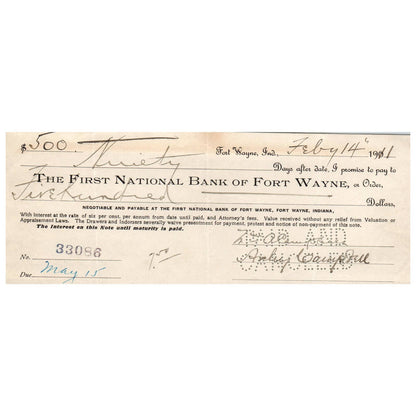 $ 500
Fort Wayne, Ind., Feby 14" 1911
Ninety Days after date, I promise to pay
THE FIRST NATIONAL BANK OF FORT WAYNE, or Order,
Five hundred Dollars,
NEGOTIABLE AND PAYABLE AT THE FIRST NATIONAL BANK OF FORT WAYNE, FORT WAYNE, INDIANA,
With Interest at the rate of six per cent. per annum from date until paid, and Attorney's fees. Value received without any relief from Valuation or
Appraisement Laws. The Drawers and Indorsers severally waive presentment for payment, protest and notice of non-payment of this note.
The Interest on this Note until maturity is paid.
No. 33086 7.50
Campbell
Due May 15